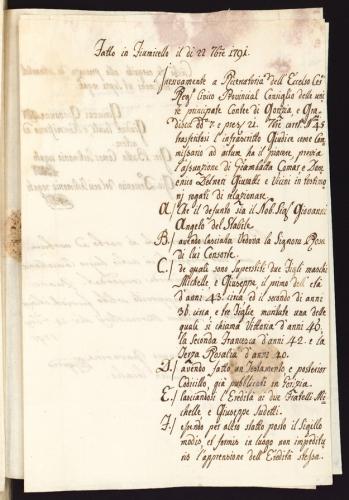 Fatto in Fiumicello il dì 22 7bre 1791.
Inerentemente a Ricercatoria dell' Eccelso Ces:
Reg: Civico Provincial Consiglio delle uni-
te principate Contee di Gorizia, e Gra-
disca 7 e 21. 7bre corr: N: 45
trasferitosi l'infrascritto Giudice come Com-
missario ad actum ha il piacere previa
l'assunzione di Giambatta Comar e Dome-
nico giurati e vicini in testimo-
nj rogati di relazionare.
A./ Che il defunto sia il Nob: Sig: Giovanni
Angelo del Stabile
B./ avendo lasciata vedova la Signora Rosa
di lui Consorte.
C./ de quali sono superstiti due Figli maschi
Michelle e Giuseppe il primo dell' età
d'anni 43. circa ed il secondo di anni
36. circa, e tre Figlie maritate una delle
quali si chiama Vittoria d'anni 46.
la seconda Francesca d'anni 42. e la
Terza Rosalia d'anni 40.
D./ avendo fatto un Testamento e posterior
Codicillo già pubblicati in Gorizia.
E./ lasciandosi l'Eredità ai due Fratelli Mi-
chelle e Giuseppe sudetti.
F./ essendo per altro statto posto il Sigillo
modis, et formis in luogo non impeditu-
ris l'apprensione dell' Eredità stessa.